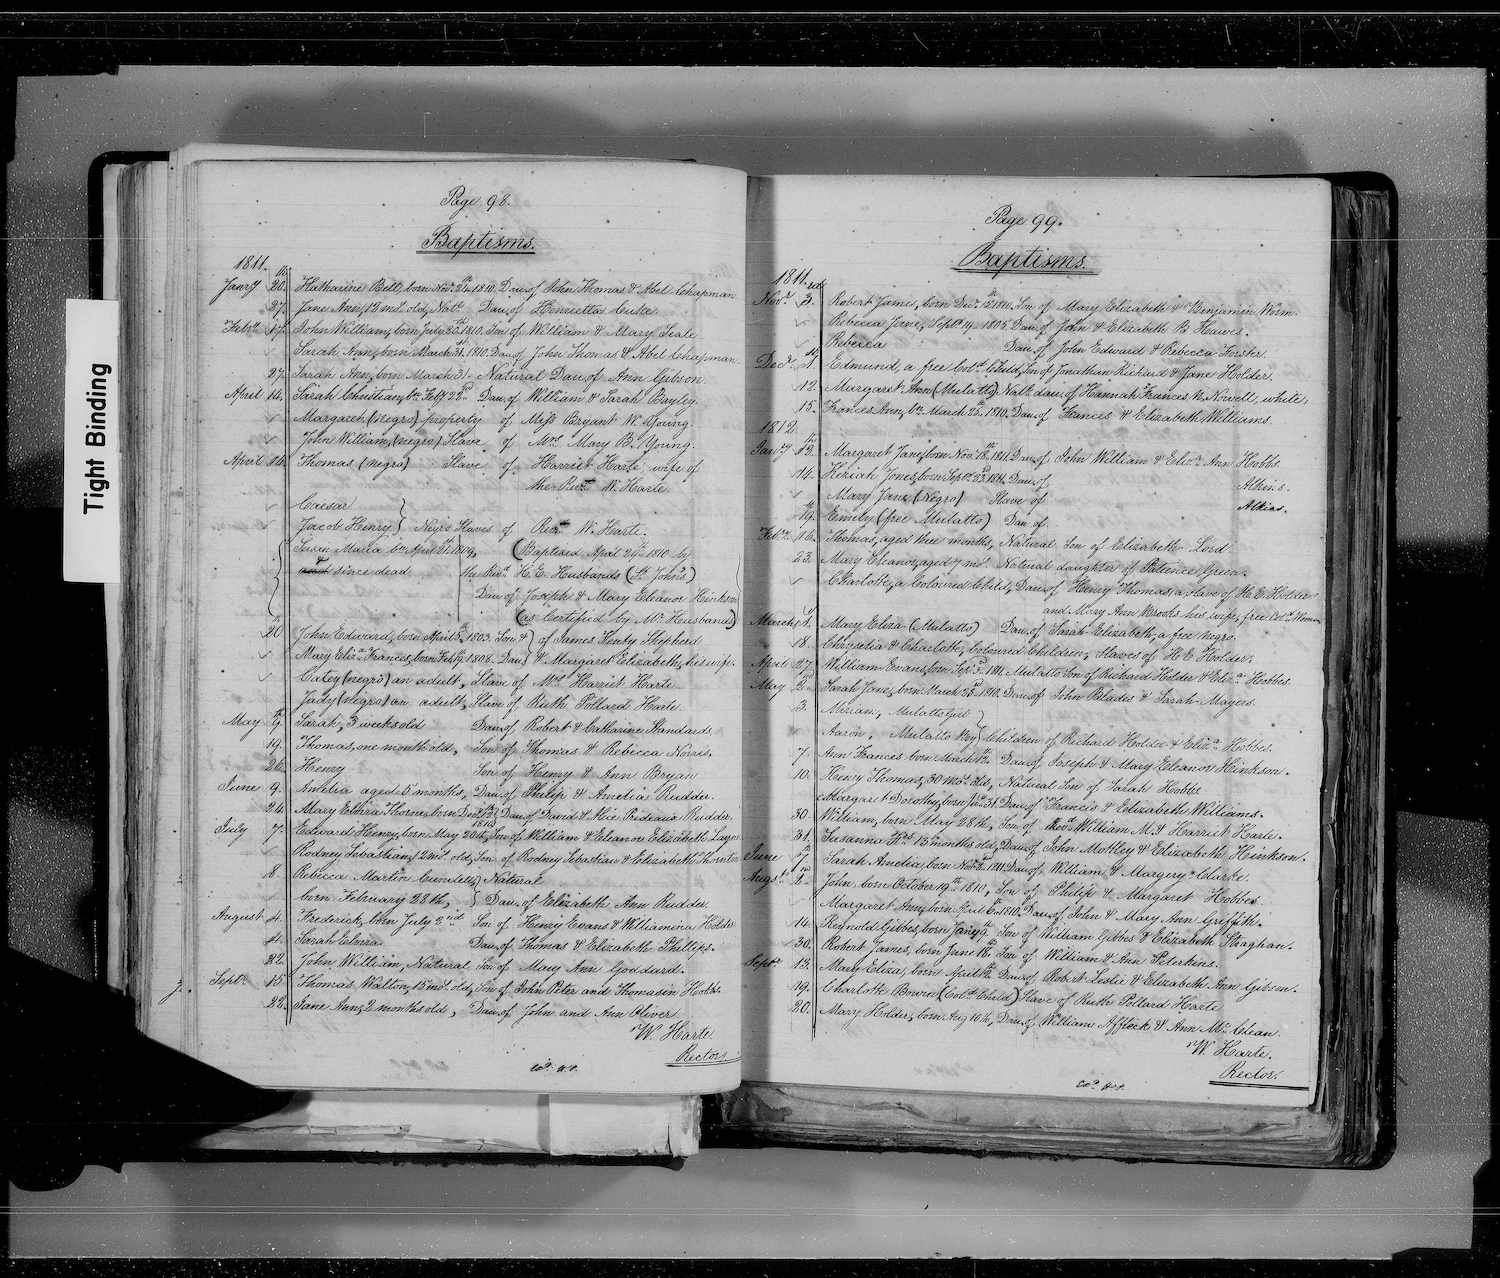 Tight Binding
Page 98.
Baptisms.
1811.
Jany 20th Katharine Bell, born Novr 1810. Dau. of John Thomas & Abel Chapman
27. Jane Ann, 12 mos. old, Natl. Dau. of Henrietta
Feby. 17. John William, born July 1810. Son of William & Mary Seale
Sarah Ann, born March 31. 1810. Dau. of John Thomas & Abel Chapman.
27. Sarah Ann, born March 31 - Natural Dau. of Ann Gibson.
April 14. Sarah Christian, bn. Feby 22nd Dau. of William & Sarah Bayley.
Margaret (negro) property of Miss Bryant W. Young
John William (negro) Slave of Mrs. Mary B. Young.
April 14. Thomas (negro) Slave of Harriet Harte, wife of
the Revd. W. Harte
Caesar
Jacob Henry } Negro Slaves of Revd. W. Harte.
Susan Maria bn. April 1809, (Baptised April 24th 1810 by
since dead the Revd. H. E. Husbands (St. John's)
Dau. of Joseph & Mary Eleanor Hinkson
(as Certified by Mr. Husbands)
20th John Edward, born April 1803. Son & } of James Henly Shepherd
Mary Eliza. Frances, born Feby 1808. Dau. } & Margaret Elizabeth, his wife.
Catey (negro) an adult, Slave of Mrs. Harriet Harte
Judy (negro) an adult, Slave of Ruth Pollard Harte.
May Sarah, 3 weeks old Dau. of Robert & Catharine Standard.
19. Thomas, one month old, Son of Thomas & Rebecca Norris.
26. Henry Son of Henry & Ann Bryan
June 9. Amelia aged 5 months, Dau. of Philip & Amelia Rudder.
24. Mary Elvira Thorne, born Decr. 1810 } Dau. of David & Alice Prideaux Rudder.
July 7. Edward Henry, born May 20th, Son of William & Eleanor Elizabeth
Rodney Sebastian, 12 mos. old, Son of Rodney Sebastian & Elizabeth Thornton
8. Rebecca Martin } Natural
born February 28th, } Dau. of Elizabeth Ann Rudder
August 4. Frederick, born July 2nd Son of Henry Evans & Williamina Holder
4. Sarah Elvira Dau. of Thomas & Elizabeth Phillips.
22. John William, Natural Son of Mary Ann Goddard.
Septr. 15. Thomas Walton, 15 mos. old, Son of John Peter and Thomasin Hobbs.
22. Jane Ann, 2 months old, Dau. of John and Ann Oliver
W. Harte.
Rector.
Page 99.
Baptisms.
1811.
Novr. 3. Robert James, born Decr. 1810. Son of Mary Elizabeth & Benjamin Worm.
Rebecca Jane, Septr. 19. 1805 Dau. of John & Elizabeth B. Hawes.
Rebecca Dau. of John Edward & Rebecca Forster.
Decr. 1. Edmund, a free Cold. Child, Son of Jonathan Richard & Jane Holder.
12. Margaret Ann (Mulatto) Natl. dau. of Hannah Frances N. Nowell, white.
15. Frances Ann, bn. March 25th. 1810. Dau. of Francis & Elizabeth Williams.
1812.
Jany 12th. Margaret Jane, born Novr. 18th. 1811. Dau. of John William & Eliza. Ann Hobbs.
14. Keziah Jones, born Septr. 1811. Dau. of Atkins.
Mary Jane (Negro) Slave of Atkins.
19. Emily (free Mulatto) Dau. of
Feby. 16. Thomas, aged three months, Natural Son of Elizabeth Lord
23. Mary Eleanor, aged 7 mos. Natural daughter of Patience Green.
Charlotte, a Coloured Child, Dau. of Henry Thomas, a slave of H. E. Holder
and Mary Ann Brooks his wife, free Cold. Woman
March 1. Mary Eliza (Mulatto) Dau. of Sarah Elizabeth, a free negro.
18. Chrysetia & Charlotte, Coloured Children, Slaves of H E Holder.
April 27. William Evans, born Septr. 1811. Mulatto Son of Richard Holder & Eliza. Hobbes.
May 2nd. Sarah Jane, born March 25th 1811. Dau. of John & Sarah Mayers.
3. Miriam, Mulatto Girl }
Aaron, Mulatto Boy } Children of Richard Holder & Eliza. Hobbes.
7. Ann Frances born March Dau. of Joseph & Mary Eleanor Hinkson.
10. Henry Thomas, 30 mos. old, Natural Son of Sarah Hobbs
Margaret Dorothy, born Jan. 31. Dau. of Francis & Elizabeth Williams.
30. William, born May 28th, Son of Revd. William M. & Harriet Harte.
31. Susanna 13 months old, Dau. of John Motley & Elizabeth Hinkson.
June 7th. Sarah Amelia, born Novr. 1811. Dau. of William & Margery Clarke.
Augst. John, born October 19th 1810, Son of Philip & Margaret Hobbes
Margaret Ann, born April 1810. Dau. of John & Mary Ann Griffith.
14. Reynold Gibbes, born Jany Son of William Gibbes & Elizabeth Straghan.
30. Robert James, born June 16th. Son of William & Ann Peterkins.
Septr. 13. Mary Eliza, born April Dau. of Robt. A. Leslie & Elizabeth Ann Gibson.
19. Charlotte Bowen (Cold. Child) Slave of Ruth Pollard Harte
20. Mary Holder, born Aug 10th, Dau. of William Affleck & Ann Mc. Clean.
W. Harte.
Rector.